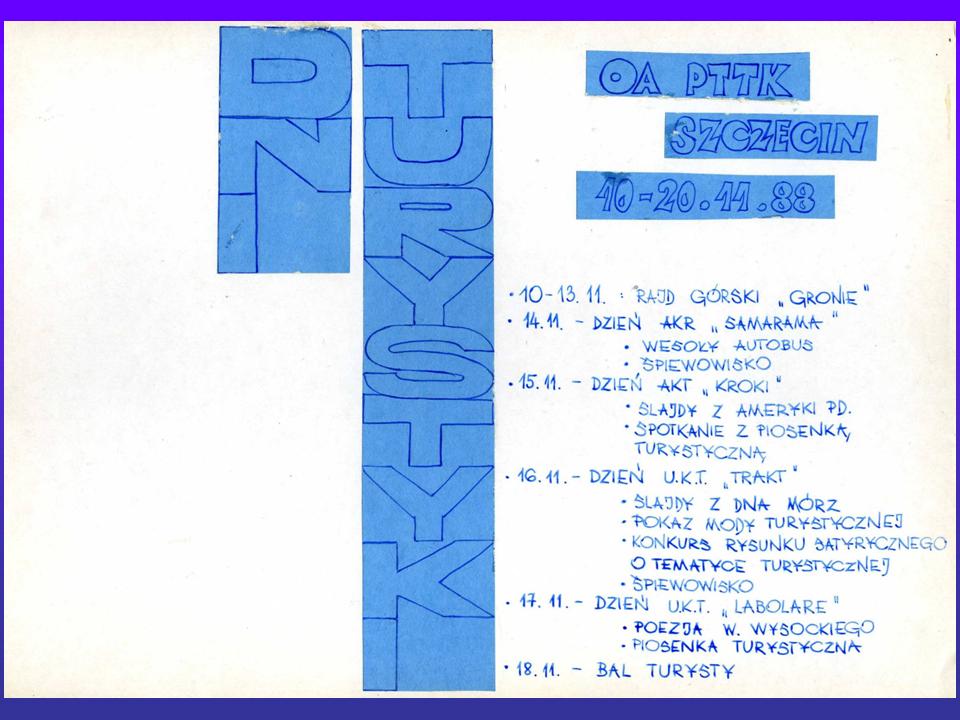 DNI
TURYSTYKI
OA PTTK
SZCZECIN
10-20.11.88
• 10-13.11. : RAJD GÓRSKI „GRONIE"
• 14.11. - DZIEŃ AKR „SAMARAMA"
• WESOŁY AUTOBUS
• ŚPIEWOWISKO
• 15.11. - DZIEŃ AKT „KROKI"
• SLAJDY Z AMERYKI PD.
• SPOTKANIE Z PIOSENKĄ
TURYSTYCZNĄ
• 16.11. - DZIEŃ U.K.T. „TRAKT"
• SLAJDY Z DNA MÓRZ
• POKAZ MODY TURYSTYCZNEJ
• KONKURS RYSUNKU SATYRYCZNEGO
O TEMATYCE TURYSTYCZNEJ
• ŚPIEWOWISKO
• 17.11. - DZIEŃ U.K.T. „LABOLARE"
• POEZJA W. WYSOCKIEGO
• PIOSENKA TURYSTYCZNA
• 18.11. - BAL TURYSTY